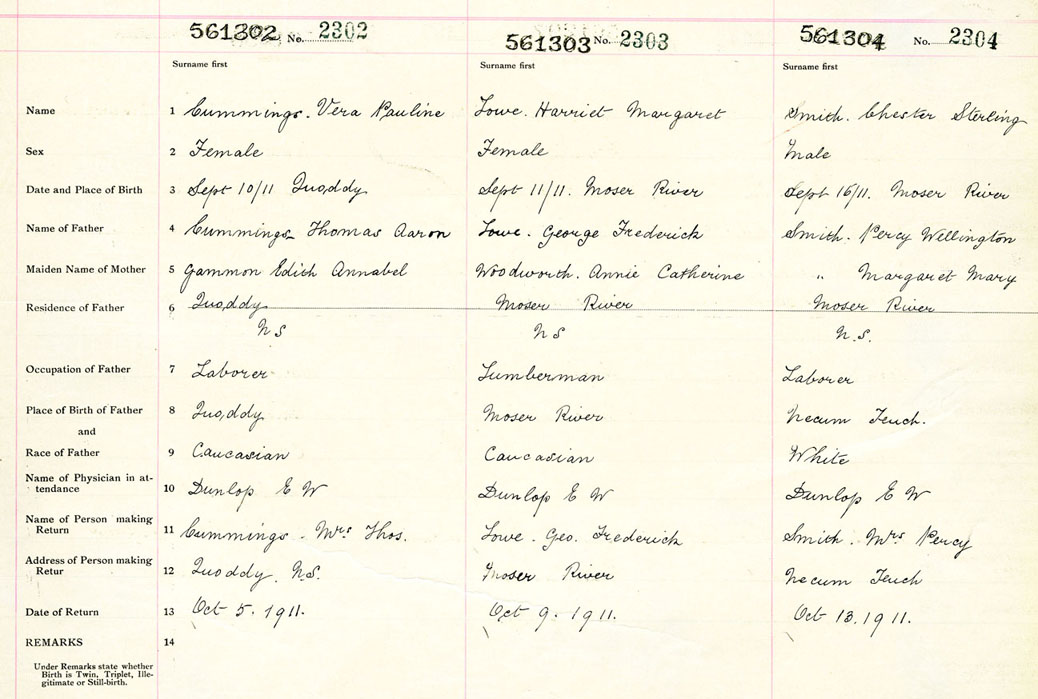 561302 No. 2302 561303 No. 2303 561304 No. 2304
Surname first Surname first Surname first
Name 1 Cummings. Vera Pauline Lowe. Harriet Margaret Smith. Chester Sterling
Sex 2 Female Female Male
Date and Place of Birth 3 Sept 10/11 Quoddy Sept 11/11. Moser River Sept 16/11. Moser River
Name of Father 4 Cummings Thomas Aaron Lowe. George Frederick Smith. Percy Wellington
Maiden Name of Mother 5 Gammon Edith Annabel Woodworth. Annie Catherine " Margaret Mary
Residence of Father 6 Quoddy Moser River Moser River
NS NS N.S.
Occupation of Father 7 Laborer Lumberman Laborer
Place of Birth of Father 8 Quoddy Moser River Necum Teuch.
and
Race of Father 9 Caucasian Caucasian White
Name of Physician in at-
tendance 10 Dunlop E W Dunlop E W Dunlop E W
Name of Person making
Return 11 Cummings. Mrs Thos. Lowe. Geo. Frederick Smith. Mrs Percy
Address of Person making
Retur 12 Quoddy. NS. Moser River Necum Teuch
Date of Return 13 Oct 5. 1911. Oct 9. 1911. Oct 13. 1911.
REMARKS 14
Under Remarks state whether
Birth is Twin, Triplet, Ille-
gitimate or Still-birth.